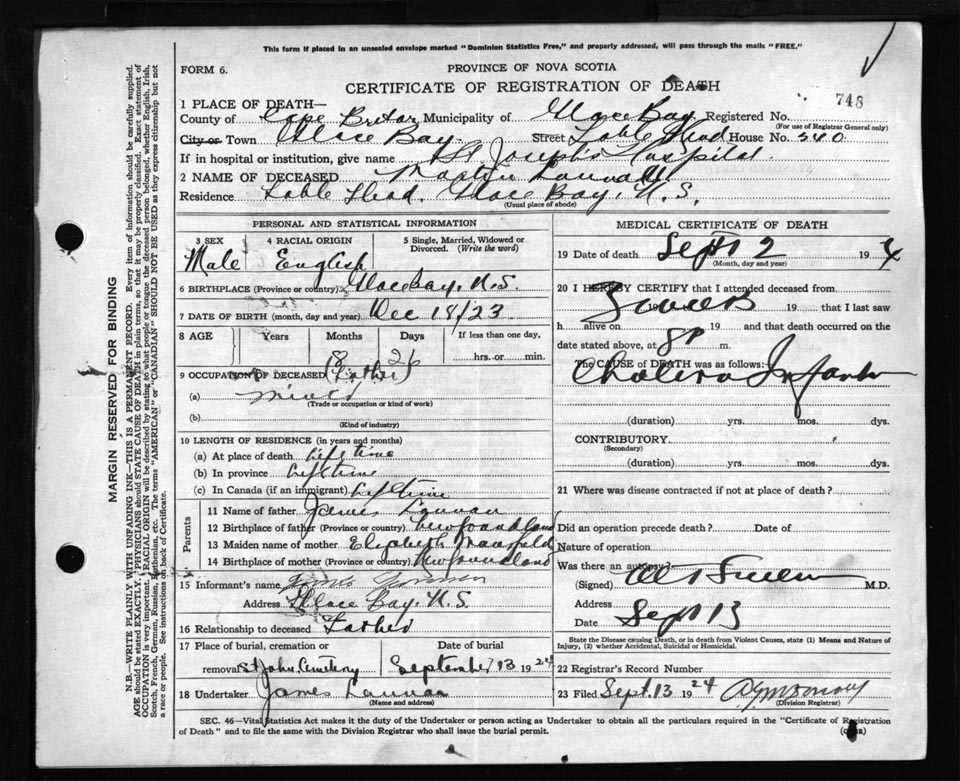 This form if placed in an unsealed envelope marked "Dominion Statistics Free," and properly addressed, will pass through the mails "FREE."
FORM 6.
PROVINCE OF NOVA SCOTIA
CERTIFICATE OF REGISTRATION OF DEATH
748
1 PLACE OF DEATH—
County of Cape Breton Municipality of Glace Bay Registered No.
(For use of Registrar General only)
City or Town Glace Bay. Street Table Head House No. 340
If in hospital or institution, give name St Joseph's Hospital.
2 NAME OF DECEASED Martin Lannan
Residence Table Head. Glace Bay. N.S.
(Usual place of abode)
PERSONAL AND STATISTICAL INFORMATION
3 SEX 4 RACIAL ORIGIN 5 Single, Married, Widowed or Divorced. (Write the word)
Male English
6 BIRTHPLACE (Province or country) Glace Bay, N.S.
7 DATE OF BIRTH (month, day and year) Dec 18/23
8 AGE Years Months Days If less than one day,
8 26 hrs. or min.
9 OCCUPATION OF DECEASED (Father)
(a) miner
(Trade or occupation or kind of work)
(b)
(Kind of industry)
10 LENGTH OF RESIDENCE (in years and months)
(a) At place of death Lifetime
(b) In province Lifetime
(c) In Canada (if an immigrant) Lifetime
Parents
11 Name of father James Lannan
12 Birthplace of father (Province or country) Newfoundland
13 Maiden name of mother Elizabeth Mansfield
14 Birthplace of mother (Province or country) Newfoundland
15 Informant's name James Lannan
Address Glace Bay, N.S.
16 Relationship to deceased Father
17 Place of burial, cremation or Date of burial
removal St John. Cemetery September 13 1924
18 Undertaker James Lannan
(Name and address)
MEDICAL CERTIFICATE OF DEATH
19 Date of death Sept 12 4
(Month, day and year)
20 I HEREBY CERTIFY that I attended deceased from
19 19 that I last saw
h alive on 19 and that death occurred on the
date stated above, at 8 P m.
The CAUSE of DEATH was as follows:
Cholera Infantum
(duration) yrs. mos. dys.
CONTRIBUTORY
(Secondary)
(duration) yrs. mos. dys.
21 Where was disease contracted if not at place of death?
Did an operation precede death? Date of
Nature of operation
Was there an autopsy?
(Signed) M.D.
Address
Date Sept 13
State the Disease causing Death, or in death from Violent Causes, state (1) Means and Nature of Injury, (2) whether Accidental, Suicidal or Homicidal.
22 Registrar's Record Number
23 Filed Sept. 13 1924
(Division Registrar)
SEC. 46—Vital Statistics Act makes it the duty of the Undertaker or person acting as Undertaker to obtain all the particulars required in the "Certificate of Registration
of Death" and to file the same with the Division Registrar who shall issue the burial permit. (OVER)
MARGIN RESERVED FOR BINDING
N.B.—WRITE PLAINLY WITH UNFADING INK—THIS IS A PERMANENT RECORD. Every item of information should be carefully supplied.
AGE should be stated EXACTLY. PHYSICIANS should STATE CAUSE OF DEATH in plain terms, so that it may be properly classified. Exact statement of
OCCUPATION is very important. RACIAL ORIGIN will be described by stating to what people or tongue the deceased person belonged, whether English, Irish,
Scotch, French, German, Russian, Ruthenian, etc. The terms "AMERICAN" or "CANADIAN" SHOULD NOT BE USED as they express citizenship but not
a race or people. See instructions on back of Certificate.